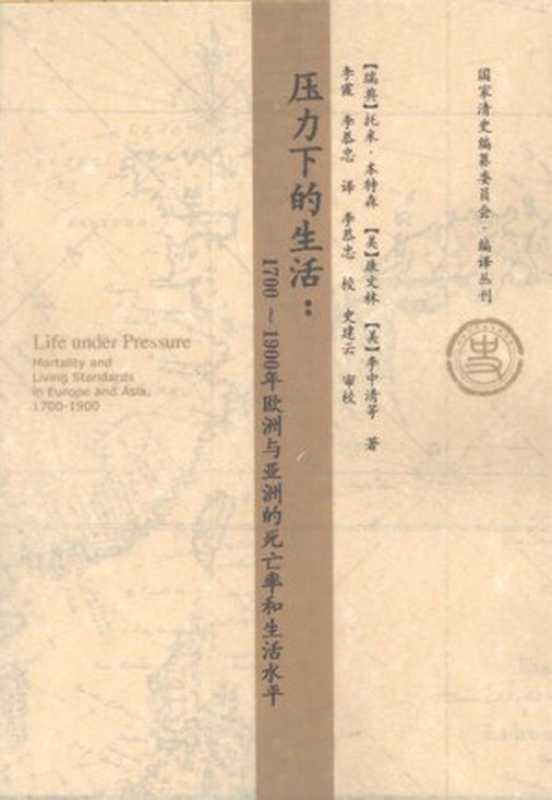 国家清史编纂委员会·编译丛刊
【瑞典】托米·本特森 【美】康文林 【美】李中清等 著
李霞 李恭忠 译 李恭忠 校 史建云 审校
压力下的生活：
1700～1900年欧洲与亚洲的死亡率和生活水平
Life under Pressure
Mortality and
Living Standards
in Europe and Asia,
1700-1900
史